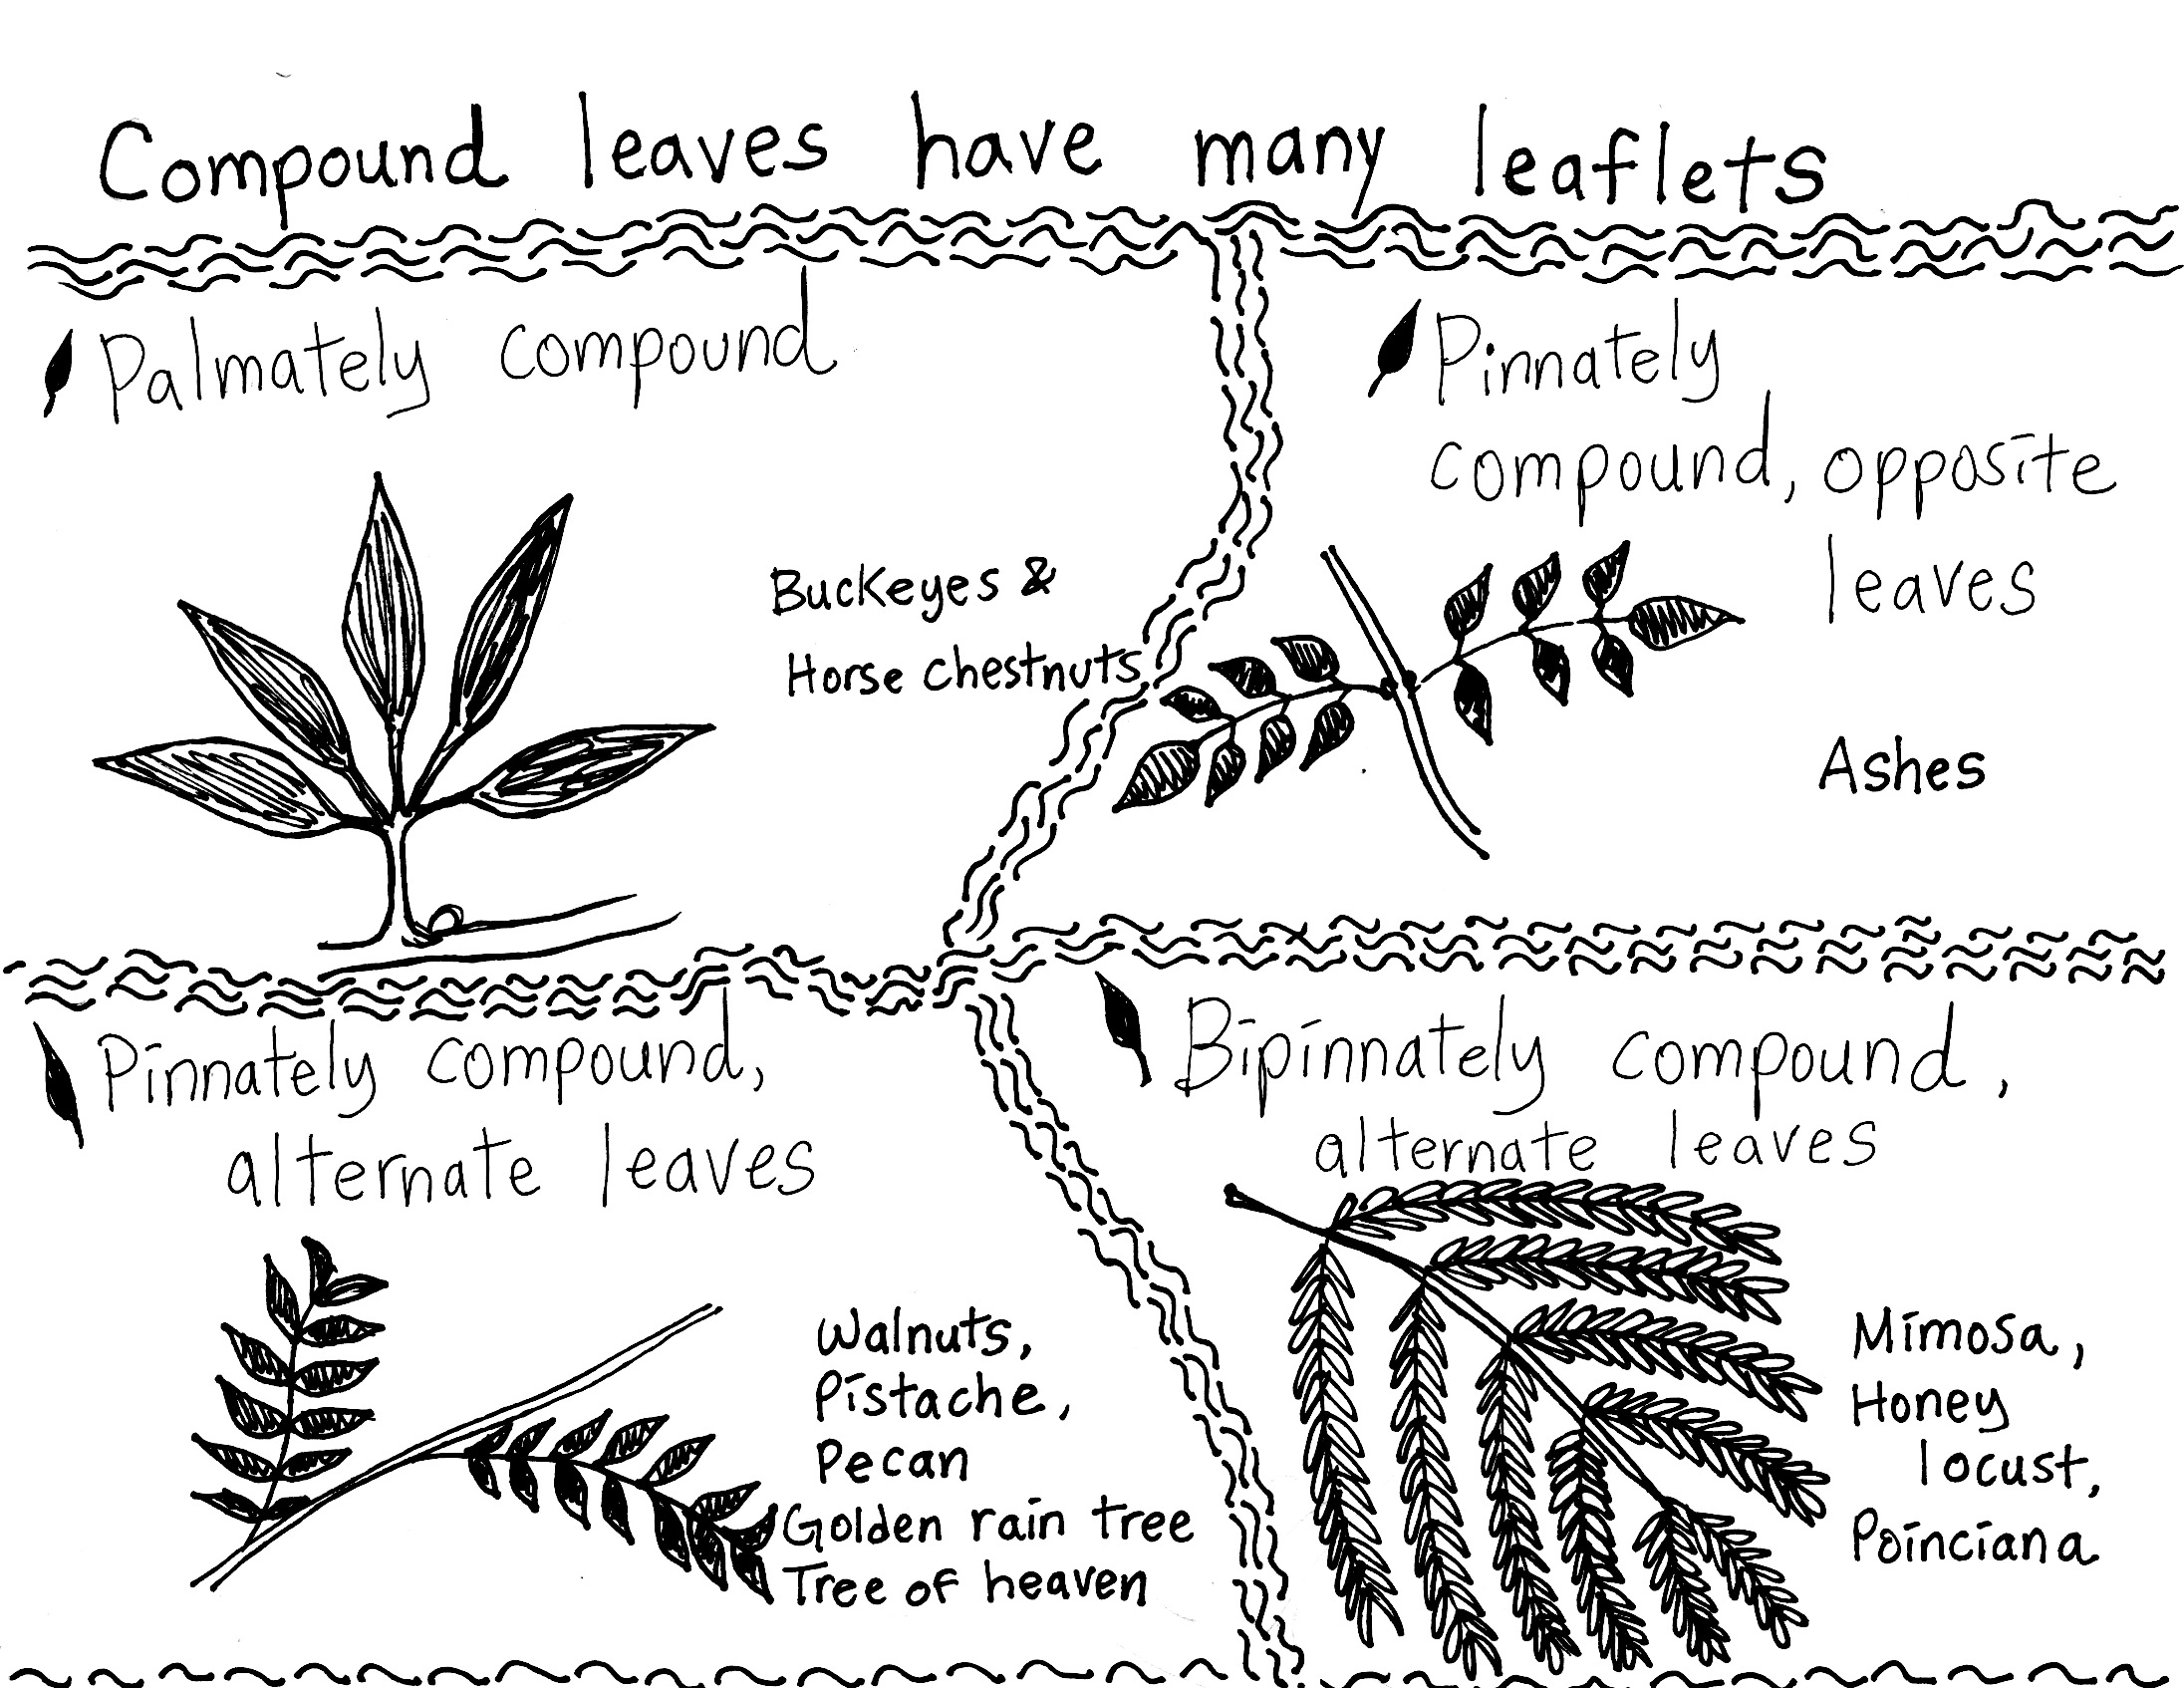 Compound leaves have many leaflets
Palmately compound
Buckeyes &
Horse chestnuts
Pinnately
compound, opposite
leaves
Ashes
Pinnately compound,
alternate leaves
Walnuts,
Pistache,
Pecan
Golden rain tree
Tree of heaven
Bipinnately compound,
alternate leaves
Mimosa,
Honey
locust,
Poinciana